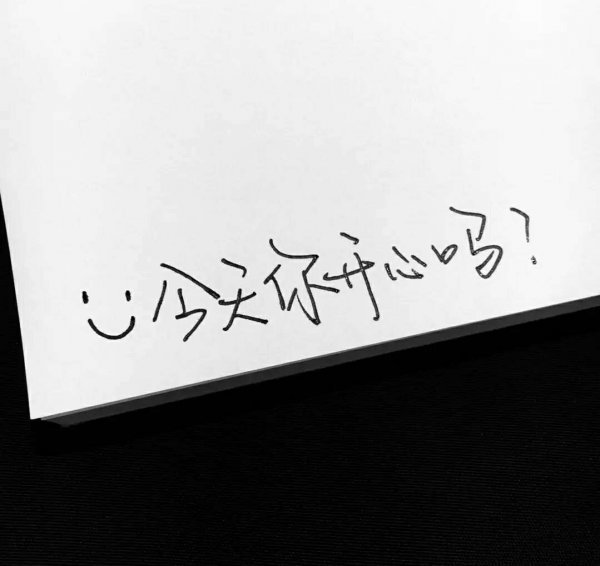 今天你开心吗?